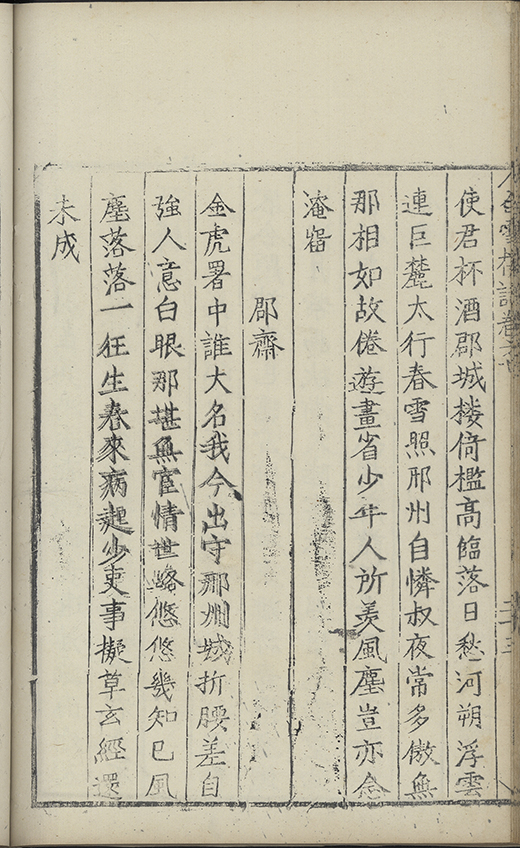 白雪樓詩卷之
二十三
使君杯酒郡城楼倚檻高臨落日愁河朔浮雲
連巨麓太行春雪照邢州自憐叔夜常多傲無
那相如故倦遊畫省少年人所羨風塵豈亦念
淹畱
郡齋
金虎署中誰大名我今出守邢州城折腰差自
強人意白眼那堪無宦情世路悠悠幾知已風
塵落落一狂生春來病起少吏事擬草玄經還
未成